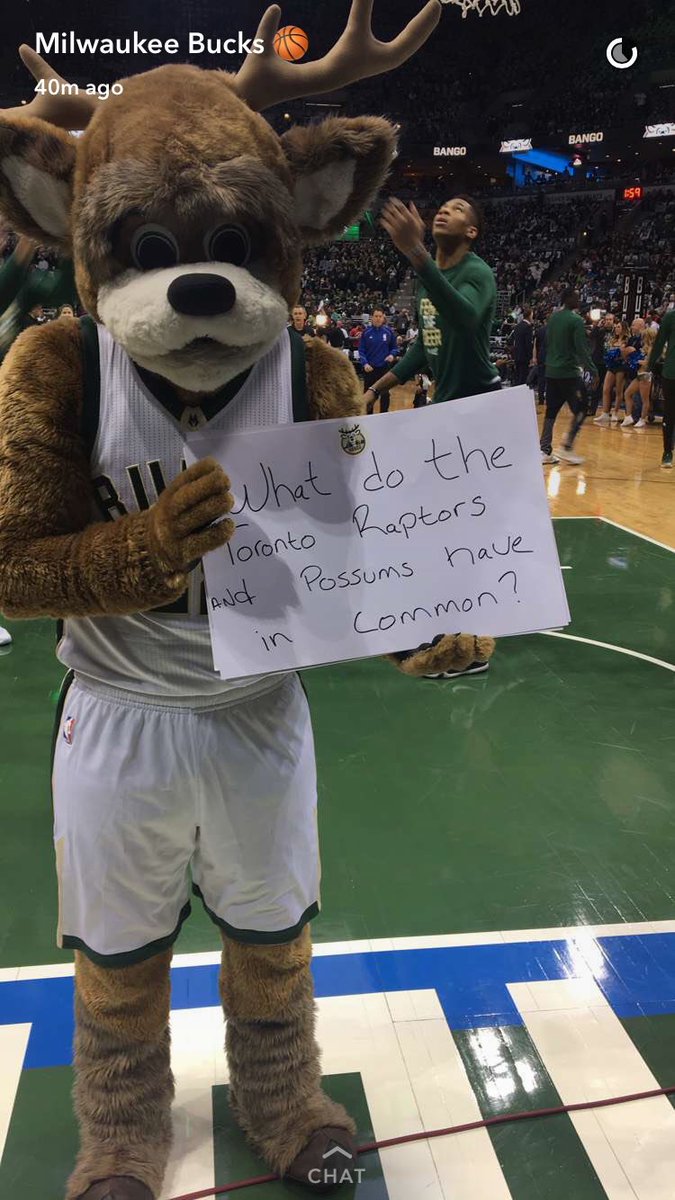 Milwaukee Bucks 🏀
40m ago
BANGO
BANGO
1:59
What do the
Toronto Raptors
AND Possums have
in common?
CHAT